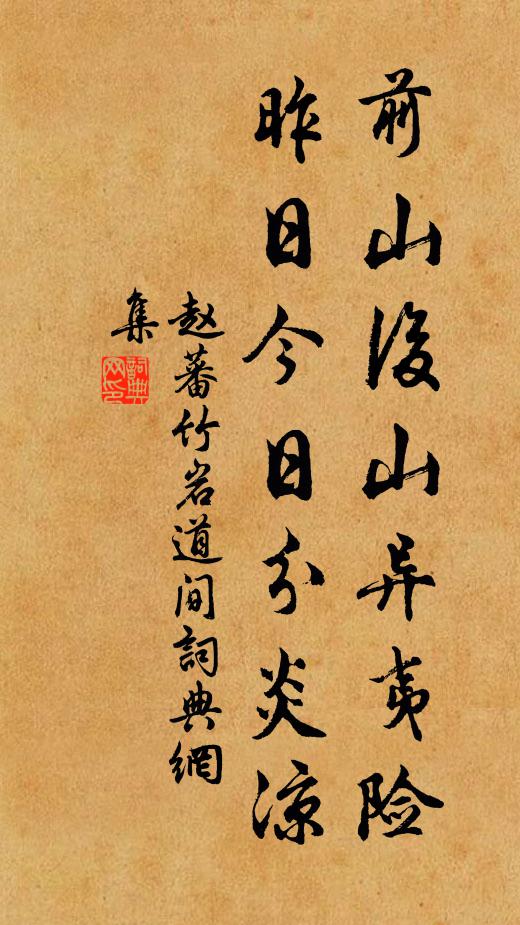 前山後山异夷险
昨日今日分炎凉
赵蕃竹岩道间詞典網
集
詞典網印